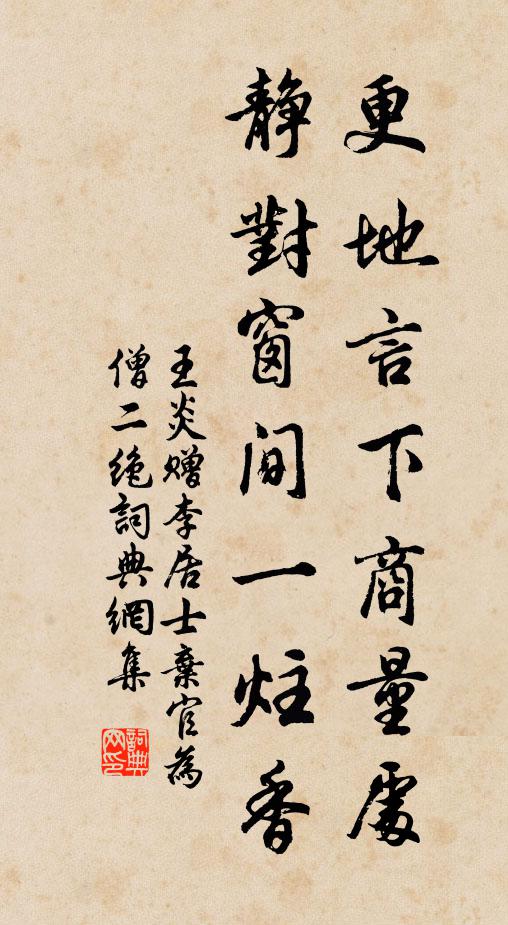 更地言下商量處
靜對窗間一炷香
王炎贈李居士棄官為
僧二絕詞典網集
詞典
网印